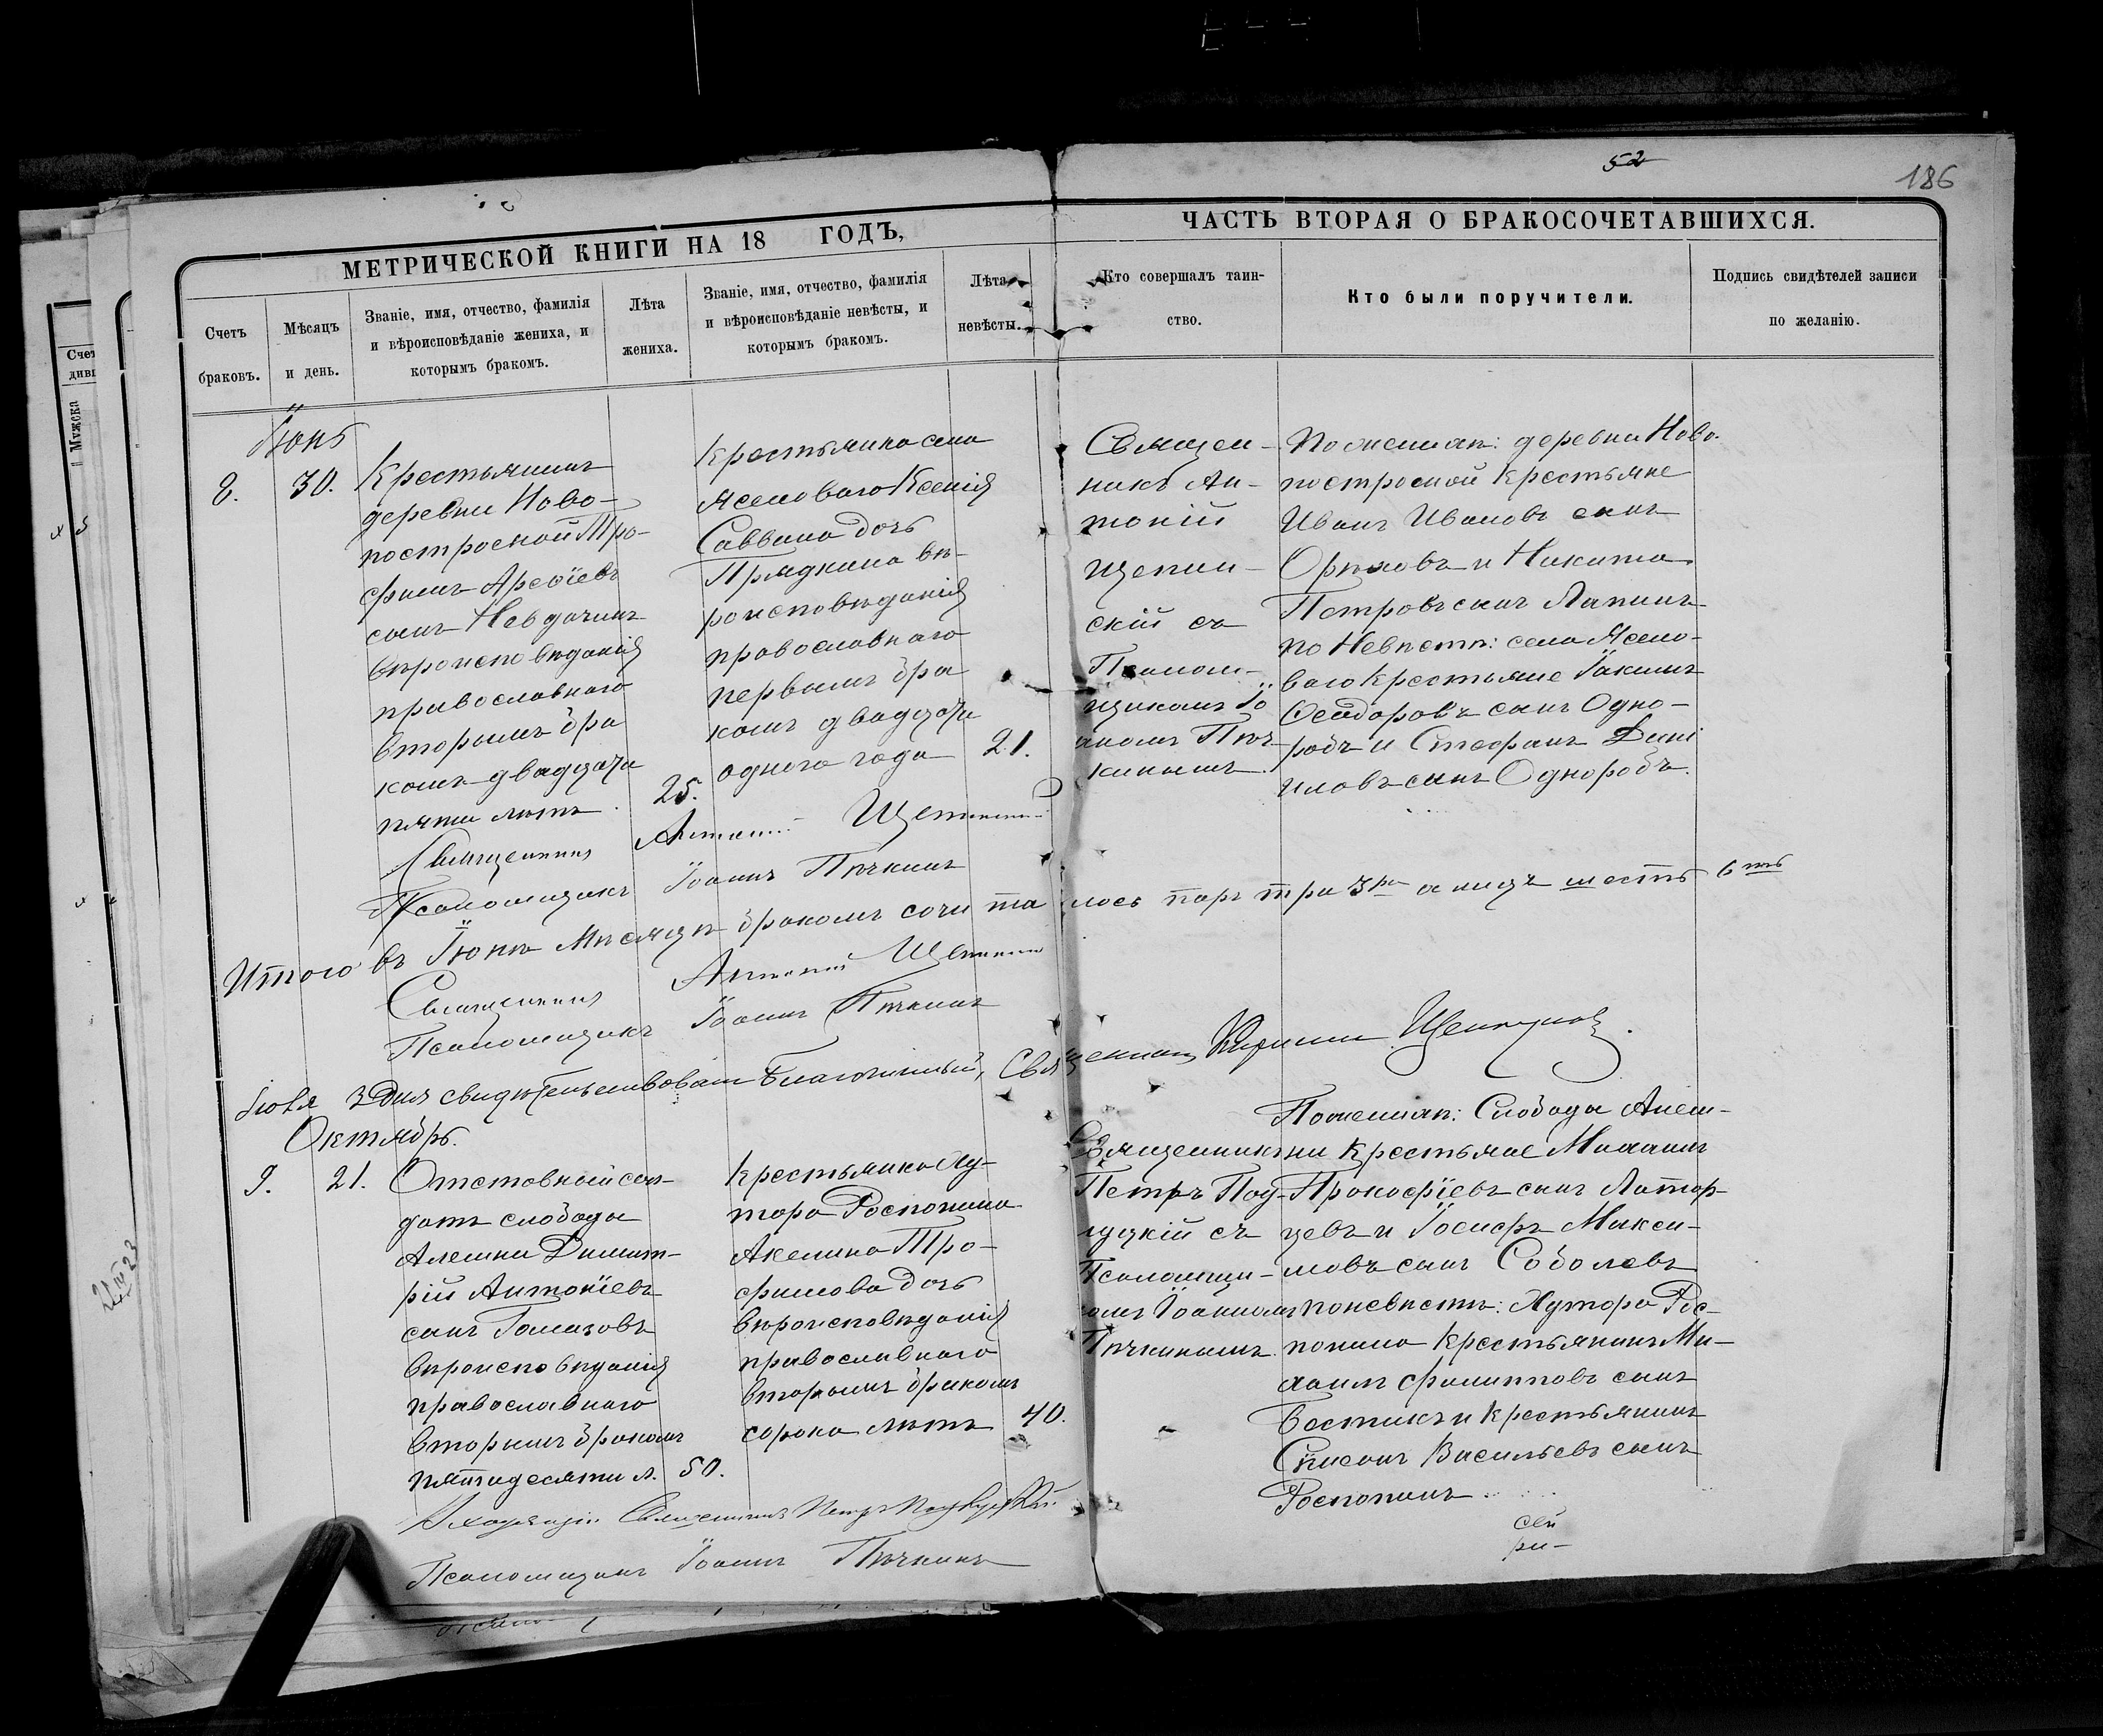 52
186
МЕТРИЧЕСКОЙ КНИГИ НА 18 ГОДЪ,
ЧАСТЬ ВТОРАЯ О БРАКОСОЧЕТАВШИХСЯ.
Счетъ
браковъ.
Мѣсяцъ
и день.
Званіе, имя, отчество, фамилія
и вѣроисповѣданіе жениха, и
которымъ бракомъ.
Лѣта
жениха.
Званіе, имя, отчество, фамилія
и вѣроисповѣданіе невѣсты, и
которымъ бракомъ.
Лѣта
невѣсты.
Кто совершалъ таин-
ство.
Кто были поручители.
Подпись свидѣтелей записи
по желанію.
Мужска
Іюнь
8.
30.
Крестьянинъ
деревни Ново-
построеной Тро-
фимъ Арефіевъ
сынъ Невдачинъ
вѣроисповѣданія
православнаго
вторымъ бра
комъ двадцати
пяти лѣтъ.
25.
Крестьянка села
Ясеноваго Ксенія
Саввина дочь
Прядкина вѣ-
роисповѣданія
православнаго
первымъ бра
комъ двадцати
одного года
21.
Священ-
никъ Ан-
тоній
Щепин-
скій съ
Псалом-
щикомъ Іо
анномъ Пѣч-
кинымъ.
По женихѣ: деревни Ново-
построеной Крестьяне
Иванъ Ивановъ сынъ
и Никита
Петровъ сынъ Лапинъ
по Невѣстѣ: села Ясено-
ваго Крестьяне Іакимъ
Ѳеодоровъ сынъ Одно-
робъ и Стефанъ Дані
иловъ сынъ Одноробъ.
Священникъ Антоній
Псаломщикъ Іоаннъ Пѣчкинъ
Итого въ Іюнѣ Мѣсяцѣ бракомъ сочиталось паръ три 3ри а лицъ шесть 6ть
Священникъ Антоній
Псаломщикъ Іоаннъ Пѣчкинъ
Іюля 3 Дня свидѣтельствовалъ Благочинный, Священникъ
Октябрь.
9.
21.
Отставной сол-
датъ слободы
Алешни Димит-
рій Антоніевъ
сынъ
вѣроисповѣданія
православнаго
вторымъ бракомъ
пятидесяти л.
50.
Крестьянка Ху-
тора Роспопина
Акелина Тро-
фимова дочь
вѣроисповѣданія
православнаго
вторымъ бракомъ
сорока лѣтъ
40.
Священникъ
Петръ Под-
луцкій съ
Псаломщи-
комъ Іоанномъ
Пѣчкинымъ.
По женихѣ: Слободы Алеш-
ни Крестьяне Михаилъ
Прокофіевъ сынъ
и Іосифъ Макси-
мовъ сынъ Соболевъ
по невѣстѣ: Хутора Рос-
попина Крестьянинъ Ми-
хаилъ Филипповъ сынъ
и Крестьянинъ
Васильевъ сынъ
Роспопинъ
Священникъ Петръ
Псаломщикъ Іоаннъ Пѣчкинъ